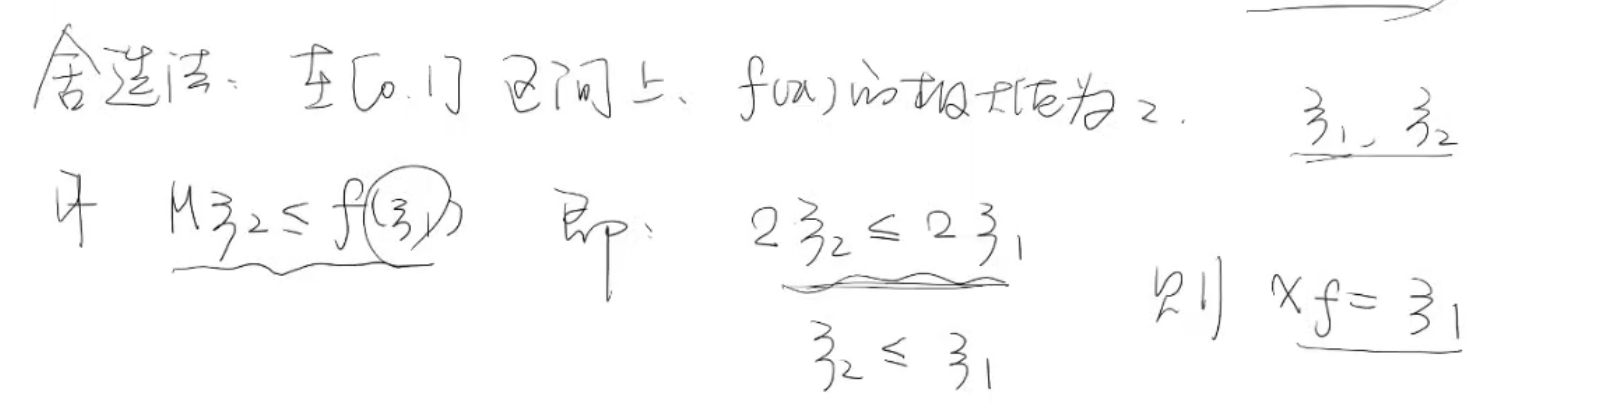 舍选法: 在[0.1]区间上、f(x)的极大值为2. ξ1、ξ2
Mξ2≤f(ξ1) 即: 2ξ2≤2ξ1
则 xf=ξ1
ξ2≤ξ1